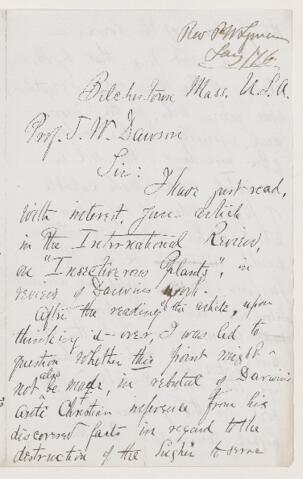 Rev P W Lyman
Jan / 76
Belchertown Mass. U.S.A.
Prof. J. W. Dawson
Sir: I have just read,
with interest, your article
in the International Review,
on "Insectiverous Plants", in
review of Darwins work.
After the reading the article, upon
thinking it over, I was led to
question whether this point might
not also be made, in rebuttal of Darwin's
anti Christian inference from his
discovered facts in regard to the
destruction of the higher to serve